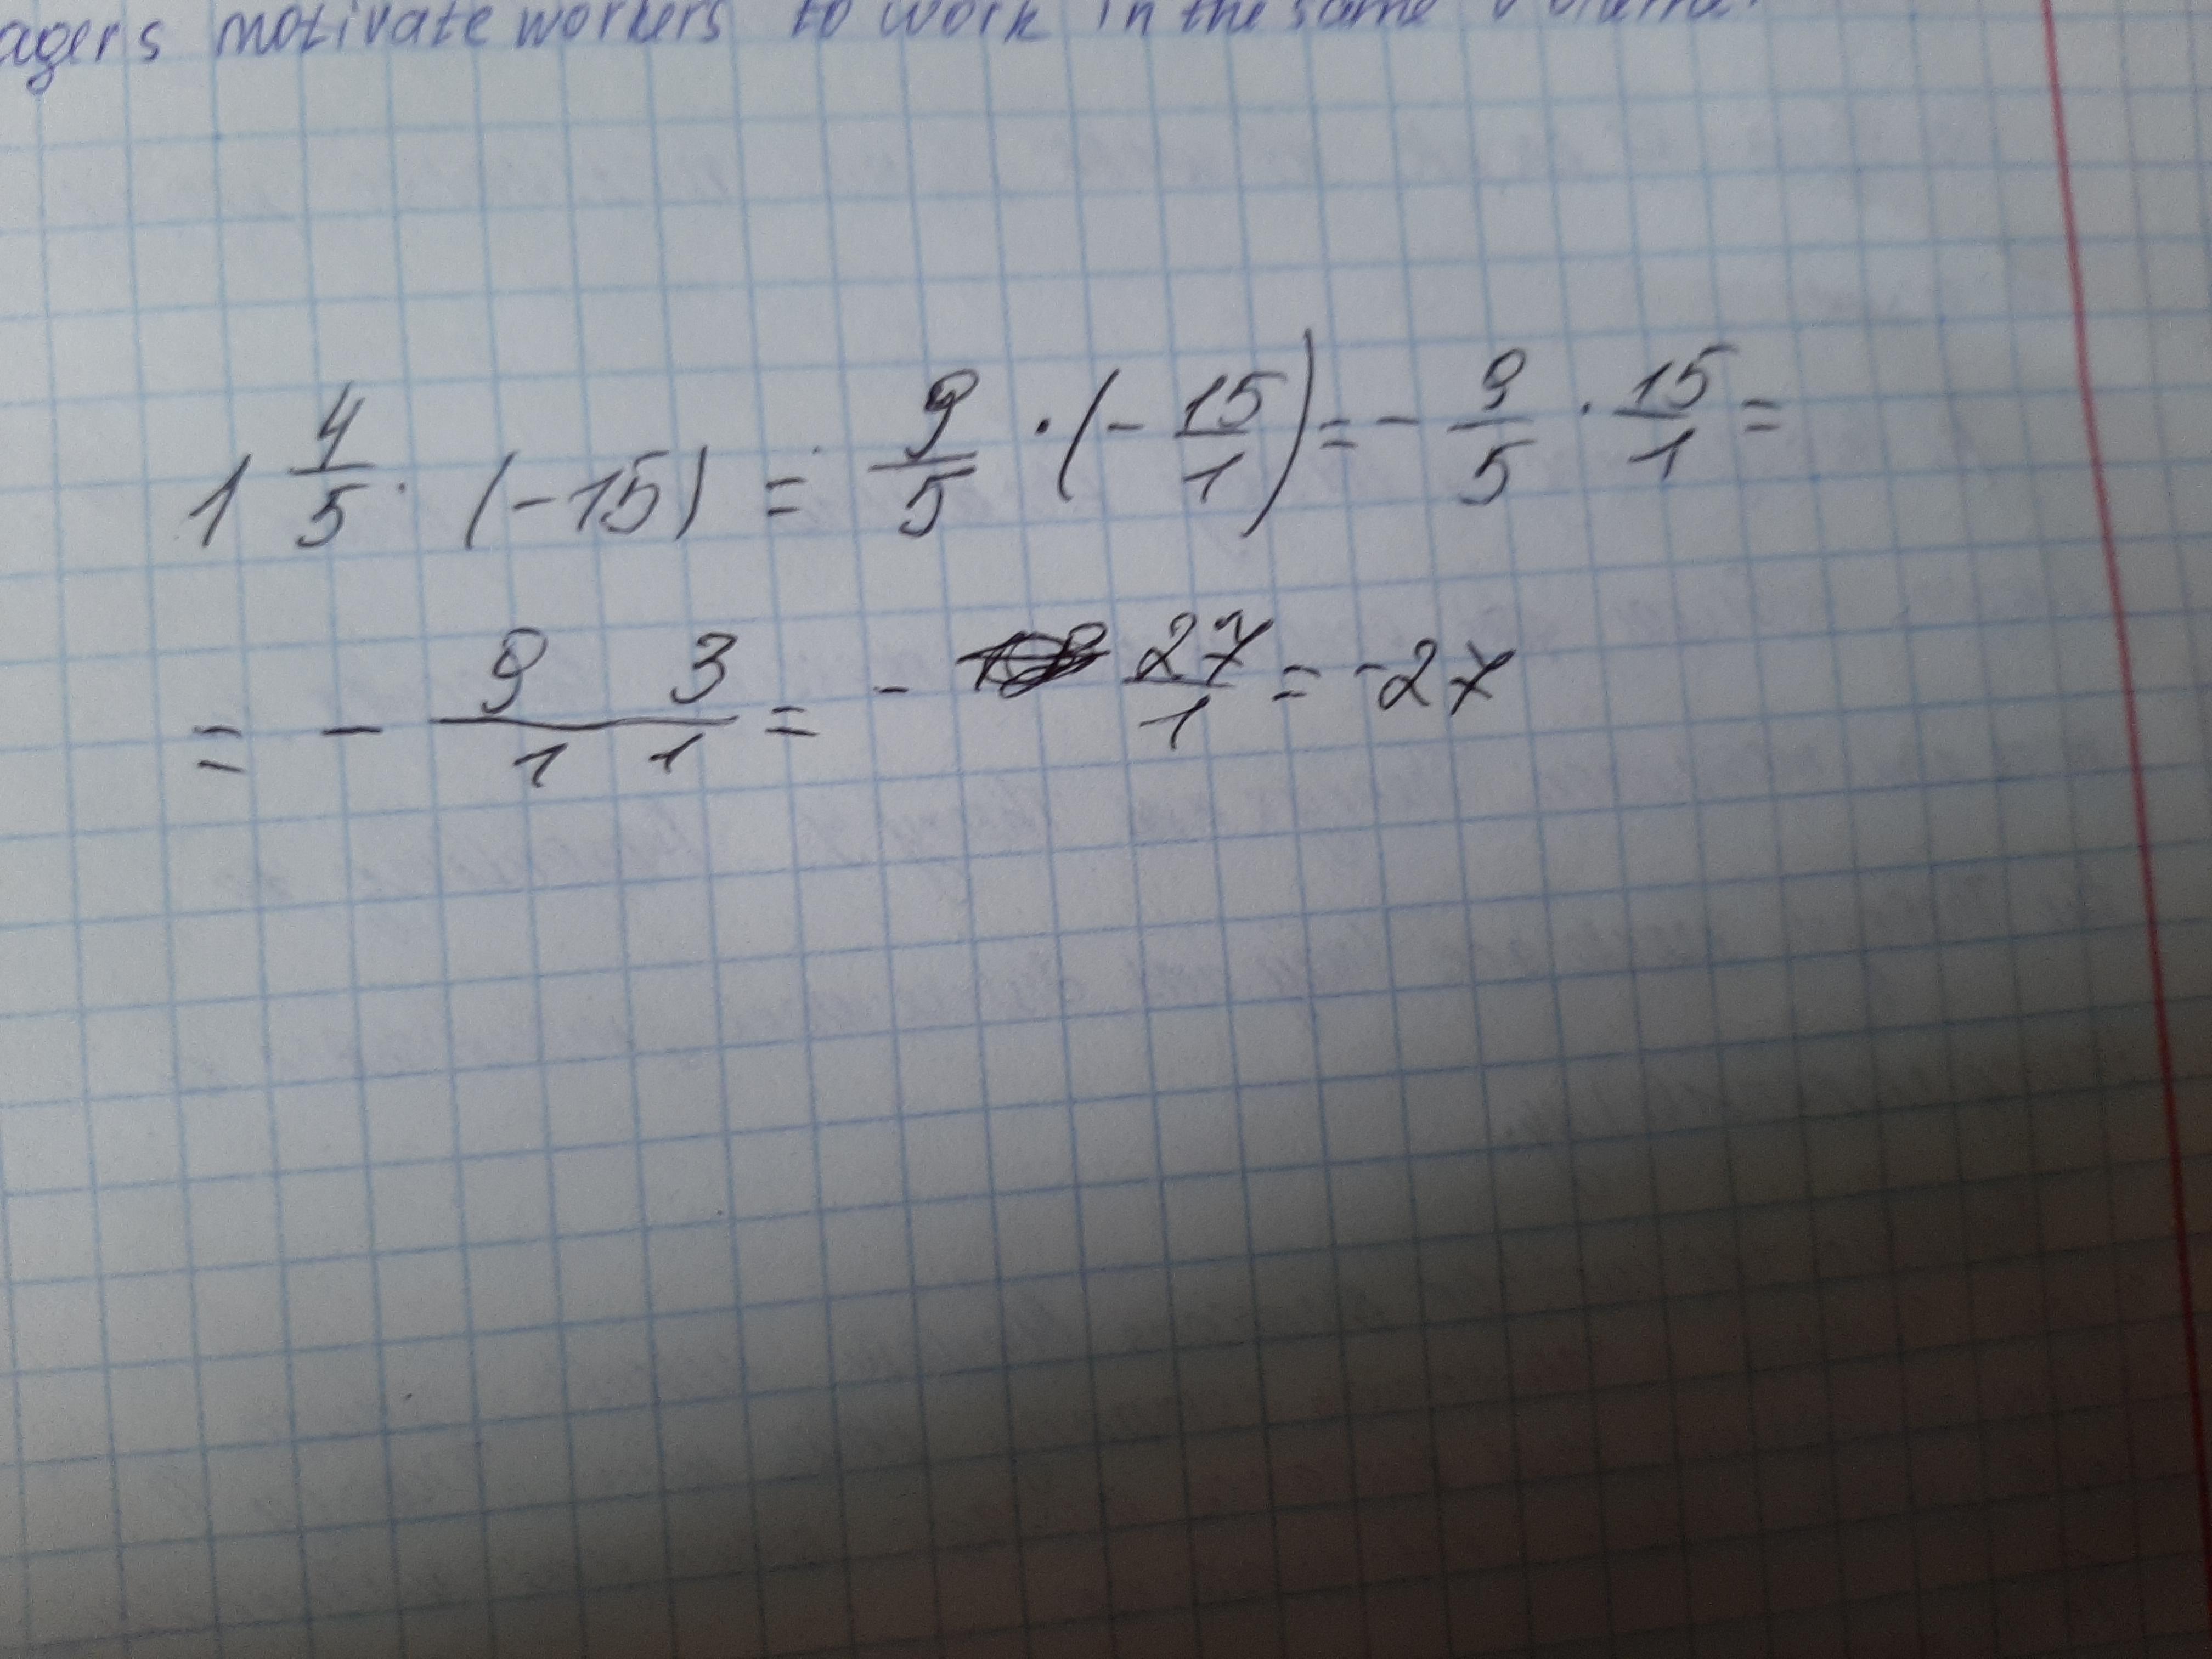 agers motivate workers to work in the same
1 4/5 · (-15) = 9/5 · (- 15/1) = - 9/5 · 15/1 =
= - 9 3 / 1 1 = - 27/1 = -27